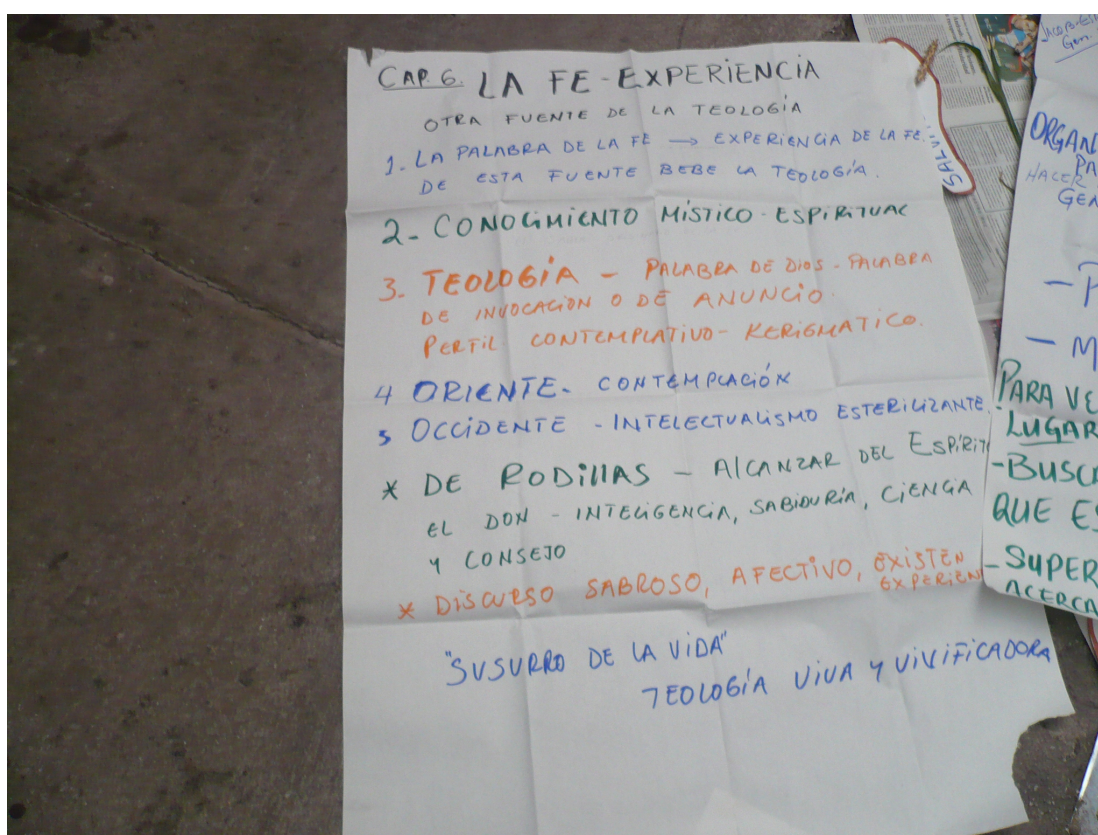 CAP. 6. LA FE-EXPERIENCIA
OTRA FUENTE DE LA TEOLOGÍA
1- LA PALABRA DE LA FE → EXPERIENCIA DE LA FE.
DE ESTA FUENTE BEBE LA TEOLOGÍA.
2- CONOCIMIENTO MÍSTICO-ESPIRITUAL
3- TEOLOGÍA - PALABRA DE DIOS - PALABRA
DE INVOCACIÓN O DE ANUNCIO
PERFIL CONTEMPLATIVO-KERIGMATICO.
4 ORIENTE- CONTEMPLACIÓN
5 OCCIDENTE - INTELECTUALISMO ESTERILIZANTE.
* DE RODILLAS - ALCANZAR DEL ESPÍRIT
EL DON - INTELIGENCIA, SABIDURÍA, CIENCIA
Y CONSEJO
* DISCURSO SABROSO, AFECTIVO, EXISTEN
EXPERIEN
"SUSURRO DE LA VIDA"
TEOLOGÍA VIVA Y VIVIFICADORA
Gen.
ORGAN
PA
HACER
GEN
- P
- M
PARA VE
LUGAR
-BUSCA
QUE ES
-SUPER
ACERCA